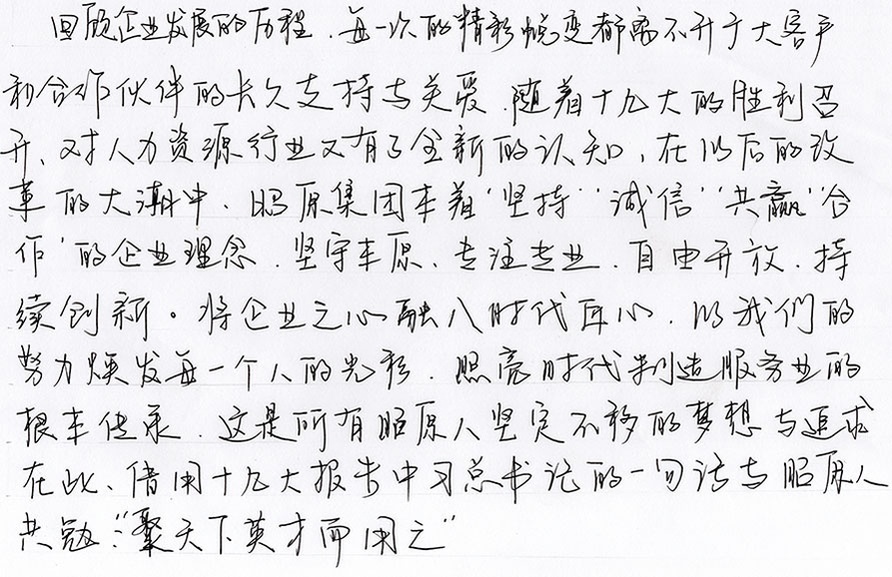 回顾企业发展的历程.每一次的精彩蜕变都离不开于大客户
和合作伙伴的长久支持与关爱.随着十九大的胜利召
开、对人力资源行业又有了全新的认知,在以后的改
革的大潮中.昭原集团本着'坚持''诚信''共赢''合
作'的企业理念.坚守本原、专注专业.自由开放.持
续创新。将企业之心融入时代匠心.以我们的
努力焕发每一个人的光彩.照亮时代制造服务业的
根本传承.这是所有昭原人坚定不移的梦想与追求
在此、借用十九大报告中习总书记的一句话与昭原人
共勉:"聚天下英才而用之"